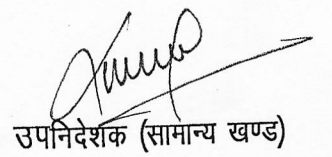 उपनिदेशक (सामान्य खण्ड)